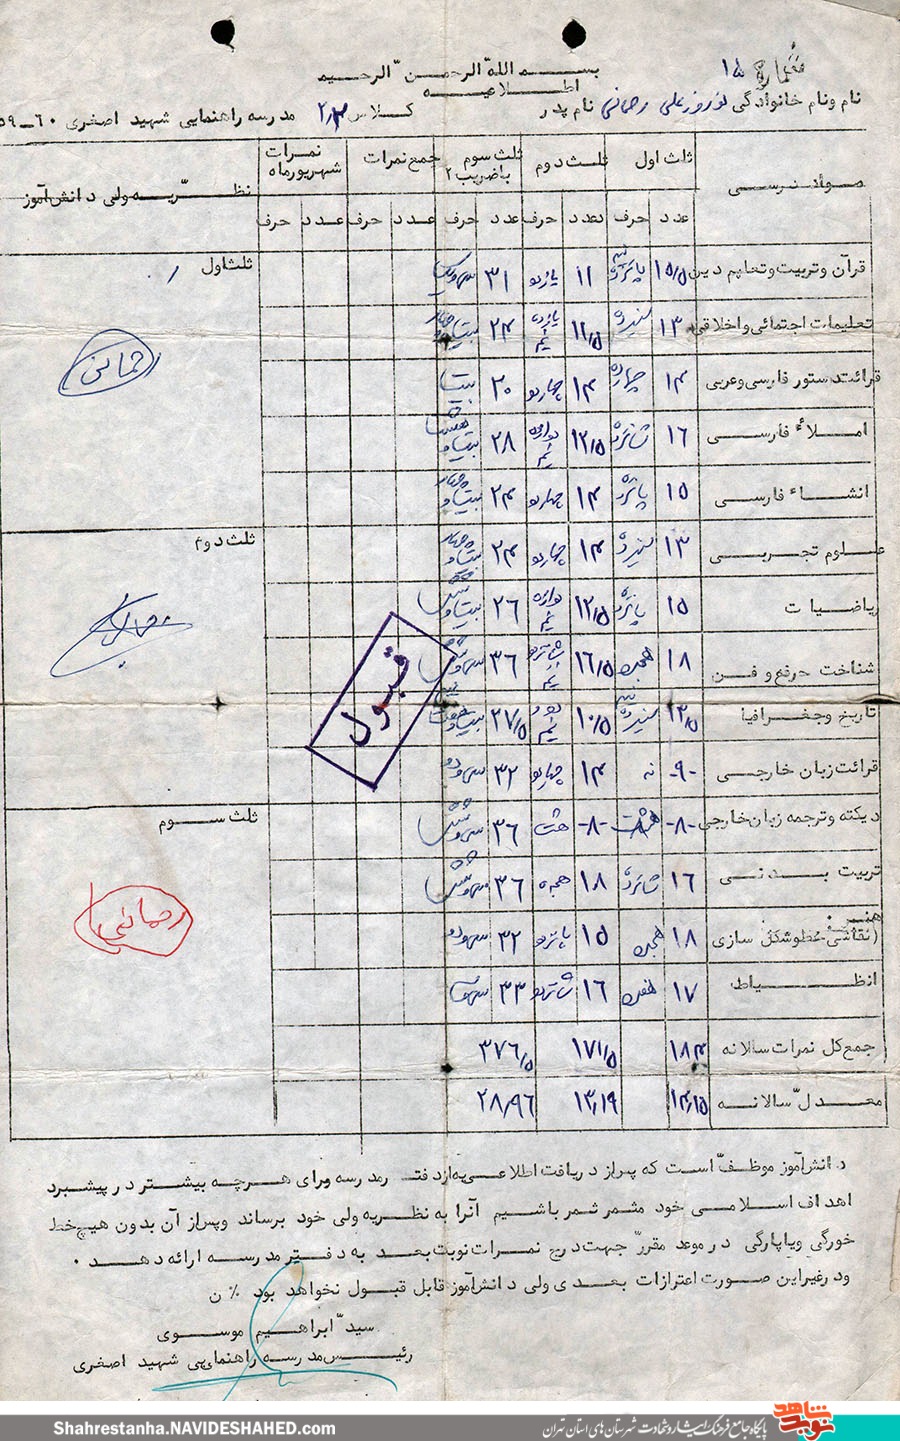 شماره ۱۵
بسم الله الرحمن الرحیم
اطلاعیه
نام و نام خانوادگی نوروزعلی رحمانی نام پدر کلاس ۲/۳ مدرسه راهنمایی شهید اصغری ۶۰-۵۹
مواد درسی ثلث اول ثلث دوم ثلث سوم با ضریب ۲ جمع نمرات نمرات شهریورماه نظریه ولی دانش‌آموز
عدد حرف عدد حرف عدد حرف عدد حرف عدد حرف
قرآن و تربیت و تعلیم دین ۱۵/۵ پانزده نیم ۱۱ یازده ۳۱ سی و یک ثلث اول
تعلیمات اجتماعی و اخلاقی ۱۳ سیزده ۱۱/۵ یازده نیم ۲۴ بیست و چهار
قرائت دستور فارسی و عربی ۱۴ چهارده ۱۴ چهارده ۲۰ بیست رحمانی
املاء فارسی ۱۶ شانزده ۱۲/۵ دوازده نیم ۲۸ بیست و هشت
انشاء فارسی ۱۵ پانزده ۱۴ چهارده ۲۴ بیست و چهار
علوم تجربی ۱۳ سیزده ۱۴ چهارده ۲۴ بیست و چهار ثلث دوم
ریاضیات ۱۵ پانزده ۱۲/۵ دوازده نیم ۲۶ بیست و شش
شناخت حرفه و فن ۱۸ هجده ۱۶/۵ شانزده نیم ۳۶ سی و شش
تاریخ و جغرافیا ۱۳/۵ سیزده نیم ۱۰/۵ ده نیم ۲۷/۵ بیست و هفت نیم
قرائت زبان خارجی -۹- نه ۱۴ چهارده ۳۲ سی و دو
دیکته و ترجمه زبان خارجی -۸- هشت -۸- هشت ۳۶ سی و شش ثلث سوم
تربیت بدنی ۱۶ شانزده ۱۸ هجده ۳۶ سی و شش
هنر (نقاشی خط و شکل سازی ۱۸ هجده ۱۵ پانزده ۳۲ سی و دو رحمانی
انظباط ۱۷ هفده ۱۶ شانزده ۳۳ سی و سه
جمع کل نمرات سالانه ۱۸۴ ۱۷۱/۵ ۳۷۶/۵
معدل سالانه ۱۴/۱۵ ۱۳/۱۹ ۲۸/۹۶
قبول
دانش‌آموز موظف است که پس از دریافت اطلاعیه از دفتر مدرسه و برای هرچه بیشتر در پیشبرد
اهداف اسلامی خود مثمر ثمر باشیم آنرا به نظریه ولی خود برساند و پس از آن بدون هیچ خط
خورگی و یا پارگی در موعد مقرر جهت درج نمرات نوبت بعد به دفتر مدرسه ارائه دهد .
و در غیر این صورت اعتراضات بعدی ولی دانش‌آموز قابل قبول نخواهد بود ٪ ن
سید ابراهیم موسوی
رئیس مدرسه راهنمایی شهید اصغری
Shahrestanha.NAVIDESHAHED.com
پایگاه جامع فرهنگ ایثار و شهادت شهرستان های استان تهران
نوید شاهد